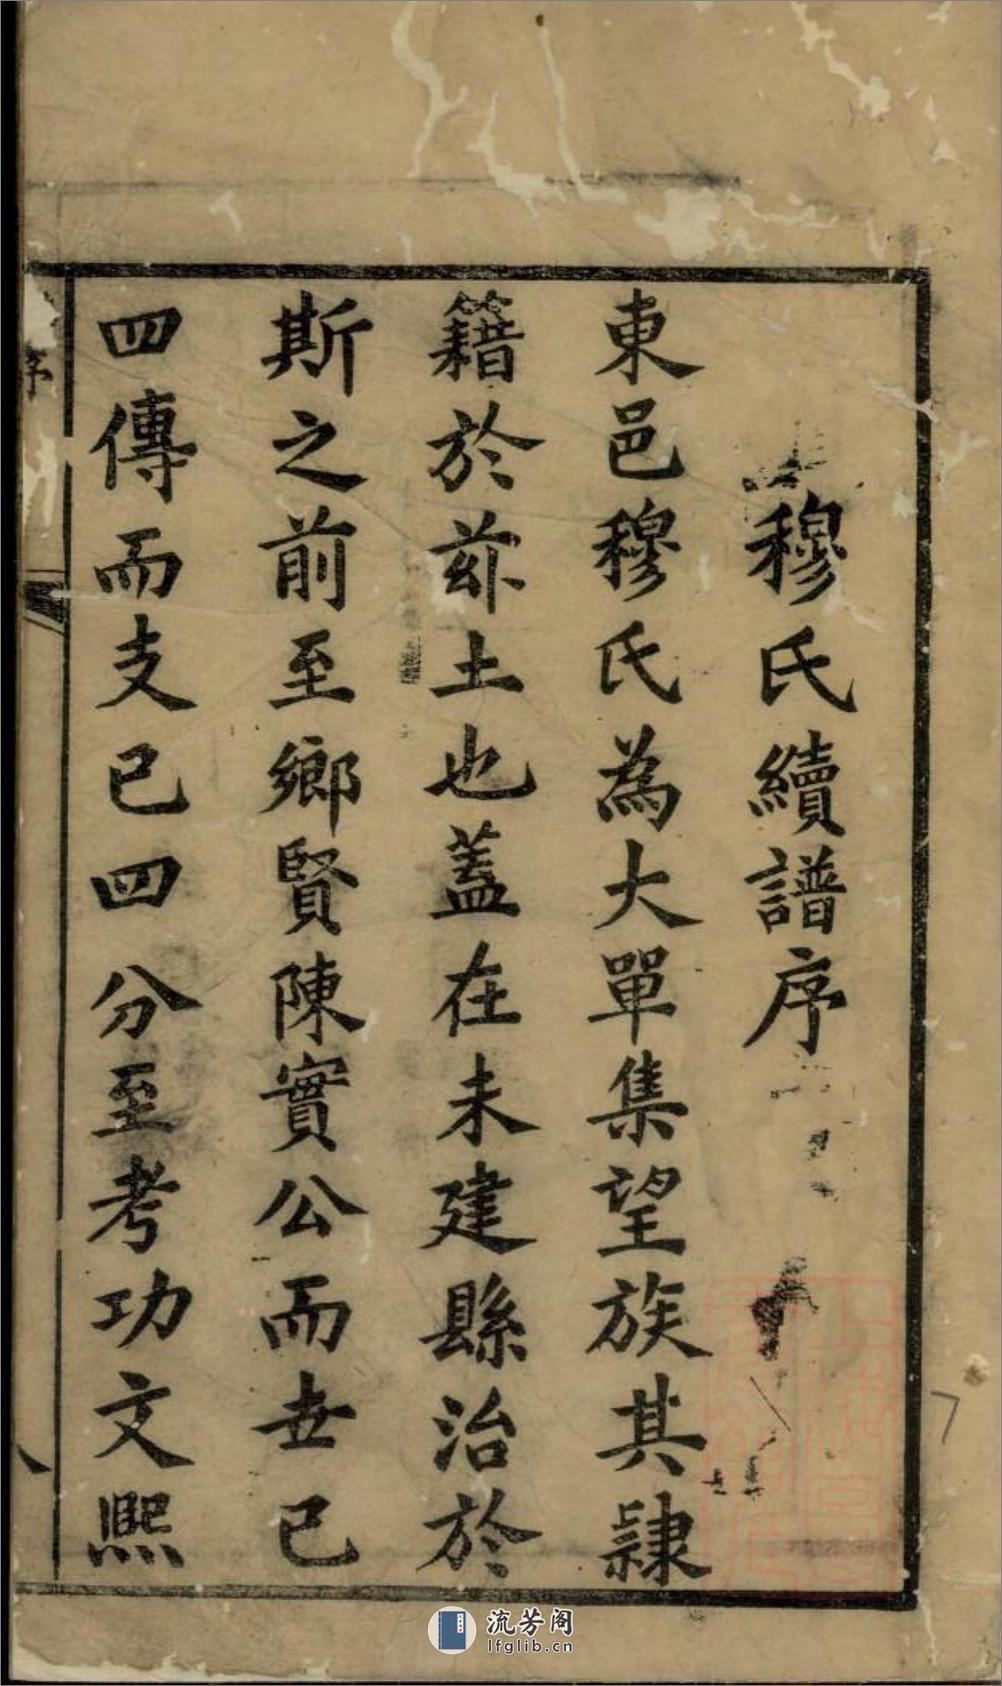 穆氏續譜序
東邑穆氏為大單集望族其隸
籍於茲土也蓋在未建縣治於
斯之前至鄉賢陳實公而世已
四傳而支已四分至考功文熙
序
7
流芳阁
lfglib.cn